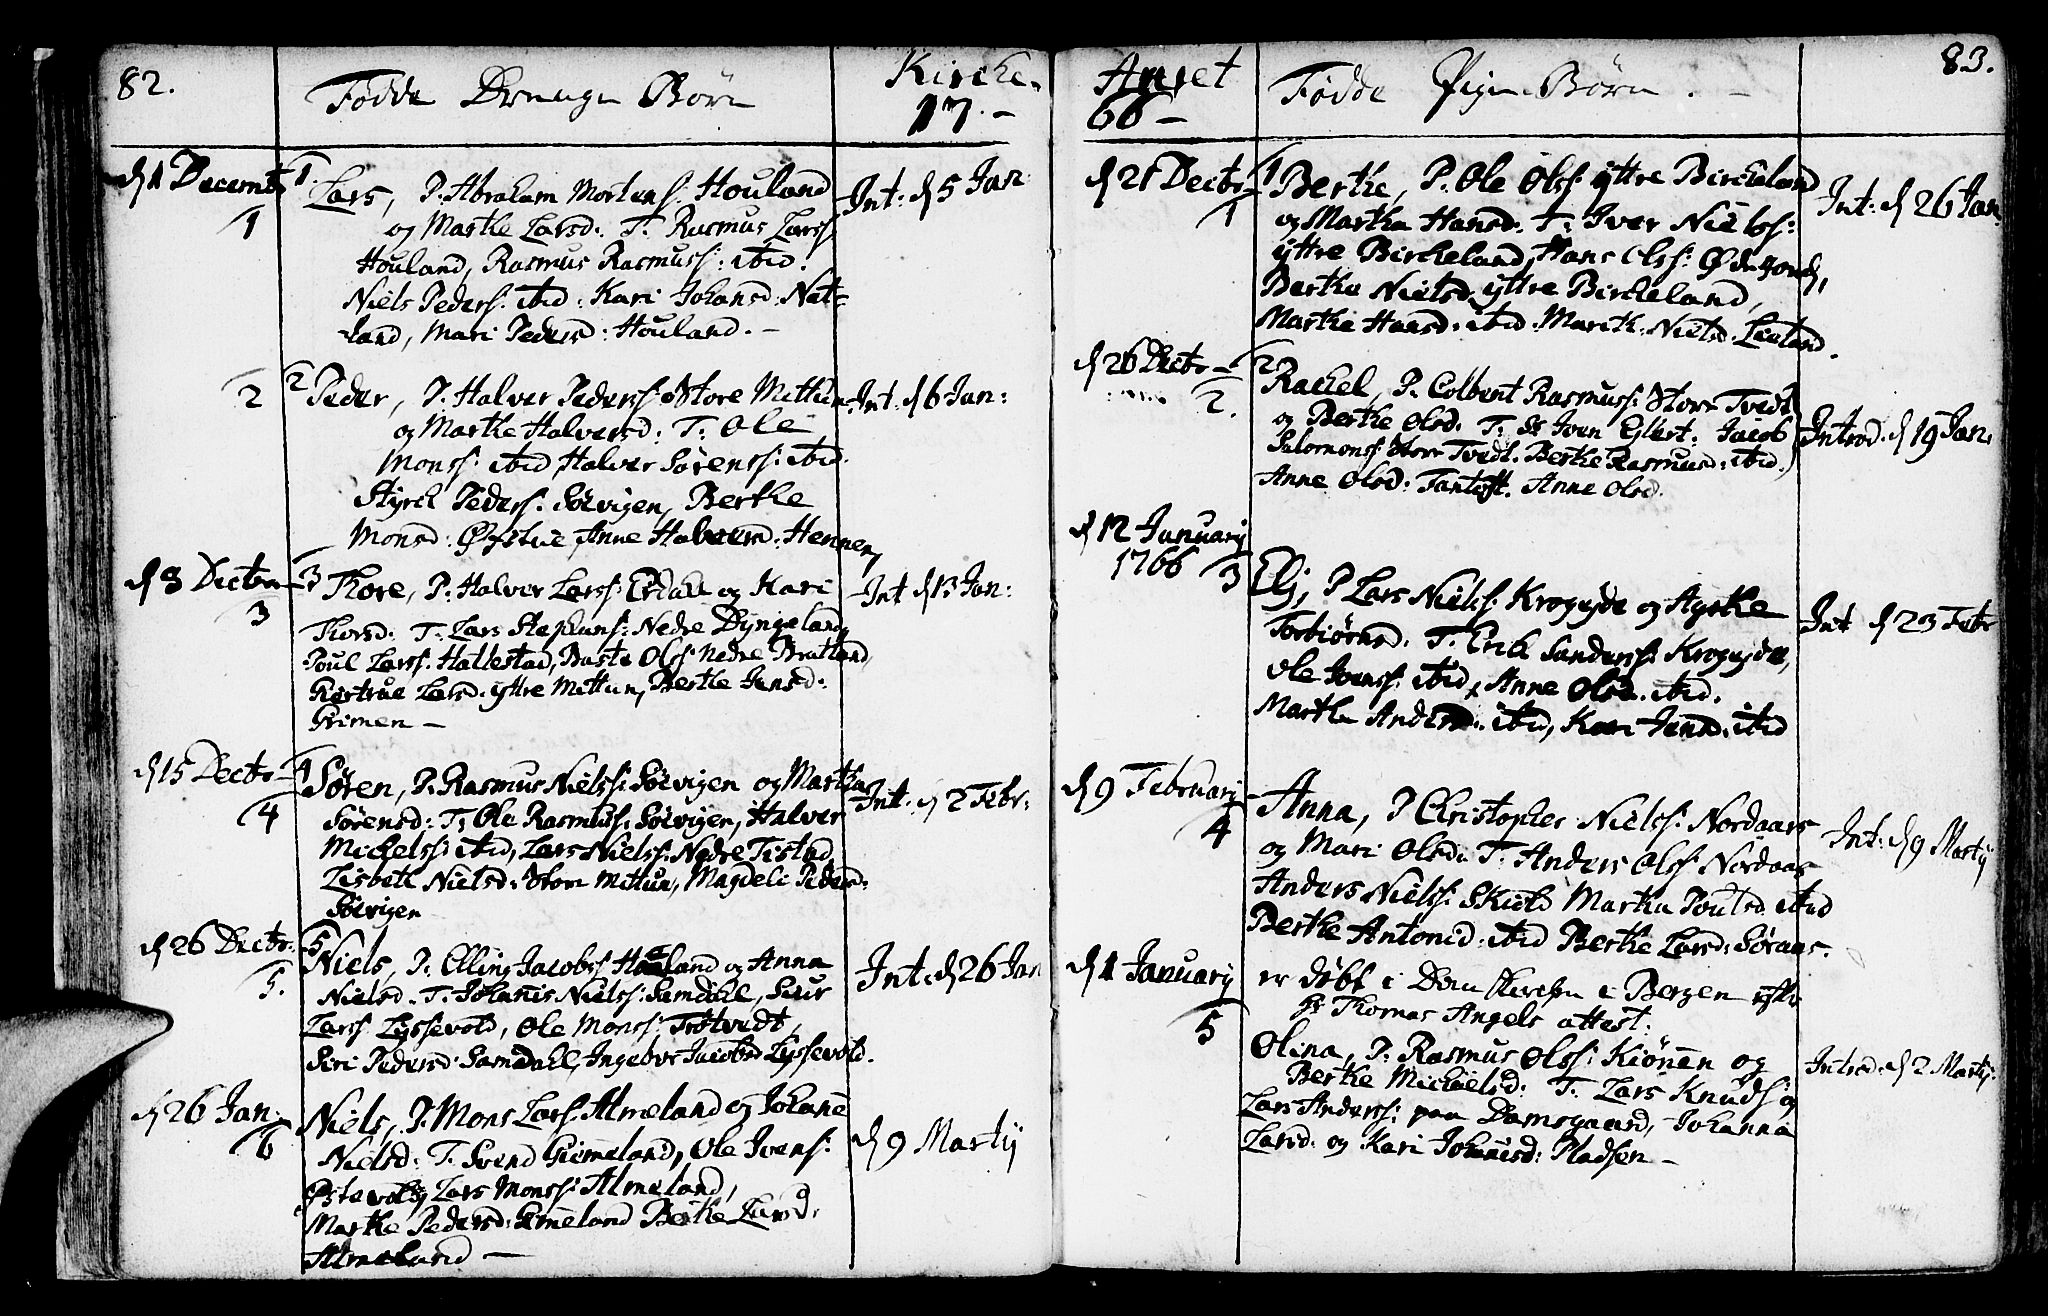 82.
Fødde Drenge Børn
Kirche-
17.-
d 1 Decembr 1.
1
Lars, P. Abraham Mortens: Houland
og Marthe Larsd: T. Rasmus Larss:
Houland, Rasmus Rasmuss: ibid.
Niels Peders: ibid: Kari Johansd: Nat-
land, Mari Pedersd: Houland. -
Int: d 5 Jan:
2
2 Peder, P. Halver Peders: Store Mittun
og Marthe Halversd: T: Ole
Monss: ibid, Halver Sørenss: ibid.
Styrck Peders: Søevigen, Berthe
Monsd: Øfstue, Anne Halversd: Hennen,
Int: d 6 Jan:
d 8 Decbr 3
3
Thore, P: Halver Larss: Erdall og Kari
Thorsd: T: Lars Stephens: Nedre Dyngeland,
Poul Larss: Hattestad, Olss: Nedre Bratland,
Giertrue Larsd: yttre Mittun, Berthe Jensd:
Grimen -
Int d 13 Jan:
d 15 Decbr 4
4
Søren, P. Rasmus Nielss: Søevigen og Martha
Sørensd: T: Ole Rasmuss: Søevigen, Halver
Michelss: ibid, Lars Nielss: Nedre Tistad,
Lisbete Nielsd: Store Mittun, Magdeli Pedersd:
Søevigen
Int: d 2 Febr:
d 26 Decbr: 5
5.
Niels, P. Elling Jacobss: Haaland og Anna
Nielsd. T: Johannis Nielss: Samdahl, Siur
Larss: Lyssevold, Ole Monss: Trøtvedt,
Siri Pedersd: Samdahl, Ingebor Jacobsd Lyssevold.
Int: d 26 Jan
d 26 Jan:
6
Niels, P. Mons Larss: Almeland og Johane
Nielsd: T. Svend Giemeland, Ole Ivers:
Østevold, Lars Monss: Almeland,
Marthe Pedersd: Gimeland Berthe Larsd:
Almeland -
d 9 Martij
Aaret
66 -
Fødde Pige Børn. -
83.
d 21 Decbr 1
1
Berthe, P. Ole Olss: yttre Bircheland
og Martha Hansd: T: Iver Nielss:
yttre Bircheland, Hans Olss:
Bertha Nielsd: yttre Bircheland,
Marthe Hansd: ibid: Marith: Nielsd: Lieland.
Int: d 26 Jan:
d 26 Decbr - 2
2.
Rachel, P. Colbent Rasmuss: Store Tvedt
og Berthe Olsd: T. Sr Iven Eylert: Jacob
Salomonss: Store Tvedt. Berthe Rasmusd: ibid.
Anne Olsd: Tantoft. Anne Olsd.
Introd: d 19 Jan:
d 12 Januarij
1766 3
Eli, P Lars Nielss: Krogeyde og Agathe
Torbiørnsd: T. Erich Sanderss: Krogeyde,
Ole Ivenss: ibid, Anne Olsd. ibid.
Martha Andersd: ibid, Kari Jensd: ibid
Int d 23 Febr
d 9 Februarij
4
Anna, P Christopher Nielss: Nordaas
og Mari Olsd: T: Anders Olss: Nordaas
Anders Nielss: Skiold Martha Poulsd. ibid
Berthe Antonid: ibid Berthe Larsd: Søraas.
Int: d 9 Martij
d 1 Januarij
5
er døbt i Dom Kirchen i Bergen efter
Hr Thomas Angels attest:
Olina, P. Rasmus Olss: Kiönen og
Berthe Michelsd: T. Lars Knuds: og
Lars Anderss: paa Damsgaard, Johanna
Larsd: og Kari Johannisd: Pladsen -
Introd: d 2 Martij: